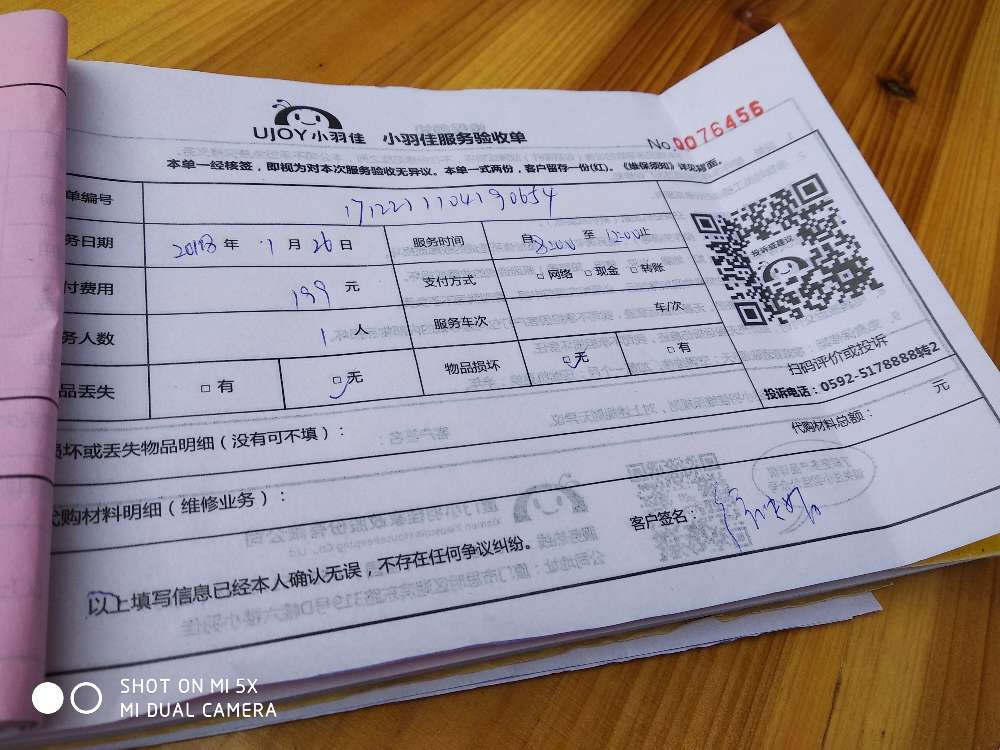 UJOY小羽佳 小羽佳服务验收单
No.0076456
本单一经核签，即视为对本次服务验收无异议。本单一式两份，客户留存一份(红)。《维保须知》详见背面。
单编号 1712211104190654
务日期 2018 年 1 月 26 日 服务时间 自 8:00 至 12:00 止
付费用 199 元 支付方式 □ 网络 □ 现金 □ 转账
务人数 1 人 服务车次 车/次
品丢失 □ 有 □ 无 物品损坏 □ 无 □ 有
投诉或建议
扫码评价或投诉
投诉电话：0592-5178888转2
损坏或丢失物品明细（没有可不填）：
代购材料总额： 元
代购材料明细（维修业务）：
客户签名：
以上填写信息已经本人确认无误，不存在任何争议纠纷。
SHOT ON MI 5X
MI DUAL CAMERA